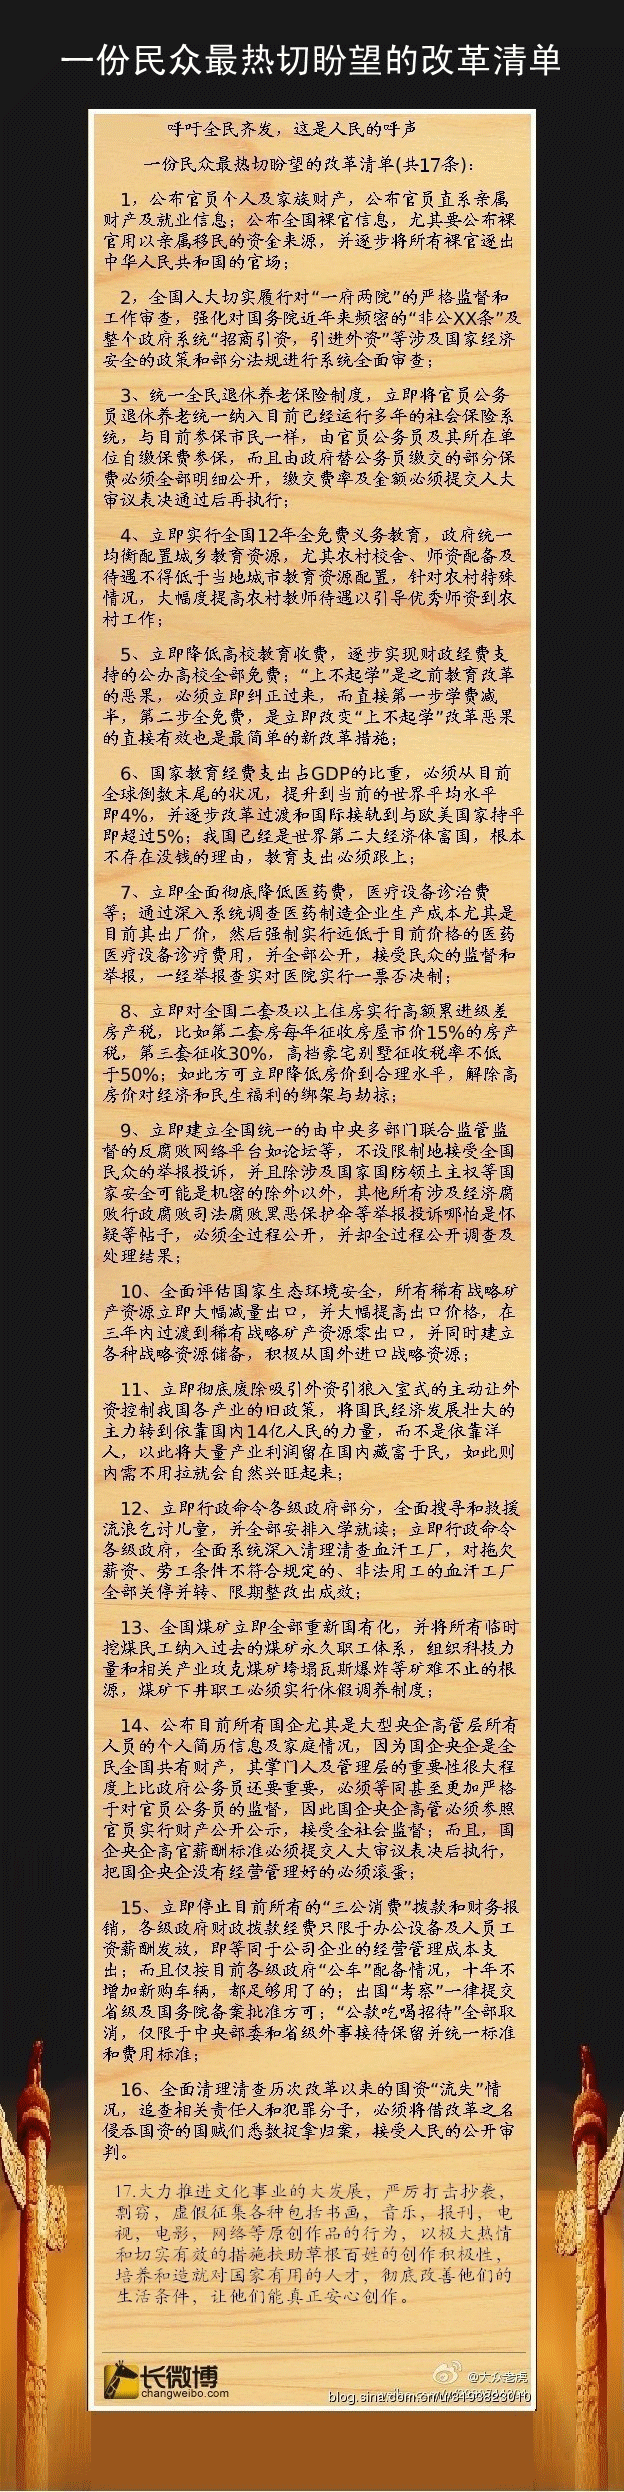 一份民众最热切盼望的改革清单
呼吁全民齐发，这是人民的呼声
一份民众最热切盼望的改革清单(共17条)：
1，公布官员个人及家族财产，公布官员直系亲属
财产及就业信息；公布全国裸官信息，尤其要公布裸
官用以亲属移民的资金来源，并逐步将所有裸官逐出
中华人民共和国的官场；
2，全国人大切实履行对“一府两院”的严格监督和
工作审查，强化对国务院近年来频密的“非公XX条”及
整个政府系统“招商引资，引进外资”等涉及国家经济
安全的政策和部分法规进行系统全面审查；
3、统一全民退休养老保险制度，立即将官员公务
员退休养老统一纳入目前已经运行多年的社会保险系
统，与目前参保市民一样，由官员公务员及其所在单
位自缴保费参保，而且由政府替公务员缴交的部分保
费必须全部明细公开，缴交费率及金额必须提交人大
审议表决通过后再执行；
4、立即实行全国12年全免费义务教育，政府统一
均衡配置城乡教育资源，尤其农村校舍、师资配备及
待遇不得低于当地城市教育资源配置，针对农村特殊
情况，大幅度提高农村教师待遇以引导优秀师资到农
村工作；
5、立即降低高校教育收费，逐步实现财政经费支
持的公办高校全部免费；“上不起学”是之前教育改革
的恶果，必须立即纠正过来，而直接第一步学费减
半，第二步全免费，是立即改变“上不起学”改革恶果
的直接有效也是最简单的新改革措施；
6、国家教育经费支出占GDP的比重，必须从目前
全球倒数末尾的状况，提升到当前的世界平均水平
即4%，并逐步改革过渡和国际接轨到与欧美国家持平
即超过5%；我国已经是世界第二大经济体富国，根本
不存在没钱的理由，教育支出必须跟上；
7、立即全面彻底降低医药费，医疗设备诊治费
等；通过深入系统调查医药制造企业生产成本尤其是
目前其出厂价，然后强制实行远低于目前价格的医药
医疗设备诊疗费用，并全部公开，接受民众的监督和
举报，一经举报查实对医院实行一票否决制；
8、立即对全国二套及以上住房实行高额累进级差
房产税，比如第二套房每年征收房屋市价15%的房产
税，第三套征收30%，高档豪宅别墅征收税率不低
于50%；如此方可立即降低房价到合理水平，解除高
房价对经济和民生福利的绑架与劫掠；
9、立即建立全国统一的由中央多部门联合监管监
督的反腐败网络平台如论坛等，不设限制地接受全国
民众的举报投诉，并且除涉及国家国防领土主权等国
家安全可能是机密的除外以外，其他所有涉及经济腐
败行政腐败司法腐败黑恶保护伞等举报投诉哪怕是怀
疑等帖子，必须全过程公开，并却全过程公开调查及
处理结果；
10、全面评估国家生态环境安全，所有稀有战略矿
产资源立即大幅减量出口，并大幅提高出口价格，在
三年内过渡到稀有战略矿产资源零出口，并同时建立
各种战略资源储备，积极从国外进口战略资源；
11、立即彻底废除吸引外资引狼入室式的主动让外
资控制我国各产业的旧政策，将国民经济发展壮大的
主力转到依靠国内14亿人民的力量，而不是依靠洋
人，以此将大量产业利润留在国内藏富于民，如此则
内需不用拉就会自然兴旺起来；
12、立即行政命令各级政府部分，全面搜寻和救援
流浪乞讨儿童，并全部安排入学就读；立即行政命令
各级政府，全面系统深入清理清查血汗工厂，对拖欠
薪资、劳工条件不符合规定的、非法用工的血汗工厂
全部关停并转、限期整改出成效；
13、全国煤矿立即全部重新国有化，并将所有临时
挖煤民工纳入过去的煤矿永久职工体系，组织科技力
量和相关产业攻克煤矿垮塌瓦斯爆炸等矿难不止的根
源，煤矿下井职工必须实行休假调养制度；
14、公布目前所有国企尤其是大型央企高管层所有
人员的个人简历信息及家庭情况，因为国企央企是全
民全国共有财产，其掌门人及管理层的重要性很大程
度上比政府公务员还要重要，必须等同甚至更加严格
于对官员公务员的监督，因此国企央企高管必须参照
官员实行财产公开公示，接受全社会监督；而且，国
企央企高官薪酬标准必须提交人大审议表决后执行，
把国企央企没有经营管理好的必须滚蛋；
15、立即停止目前所有的“三公消费”拨款和财务报
销，各级政府财政拨款经费只限于办公设备及人员工
资薪酬发放，即等同于公司企业的经营管理成本支
出；而且仅按目前各级政府“公车”配备情况，十年不
增加新购车辆，都足够用了的；出国“考察”一律提交
省级及国务院备案批准方可；“公款吃喝招待”全部取
消，仅限于中央部委和省级外事接待保留并统一标准
和费用标准；
16、全面清理清查历次改革以来的国资“流失”情
况，追查相关责任人和犯罪分子，必须将借改革之名
侵吞国资的国贼们悉数捉拿归案，接受人民的公开审
判。
17.大力推进文化事业的大发展，严厉打击抄袭，
剽窃，虚假征集各种包括书画，音乐，报刊，电
视，电影，网络等原创作品的行为，以极大热情
和切实有效的措施扶助草根百姓的创作积极性，
培养和造就对国家有用的人才，彻底改善他们的
生活条件，让他们能真正安心创作。
长微博
changweibo.com
@大众老虎